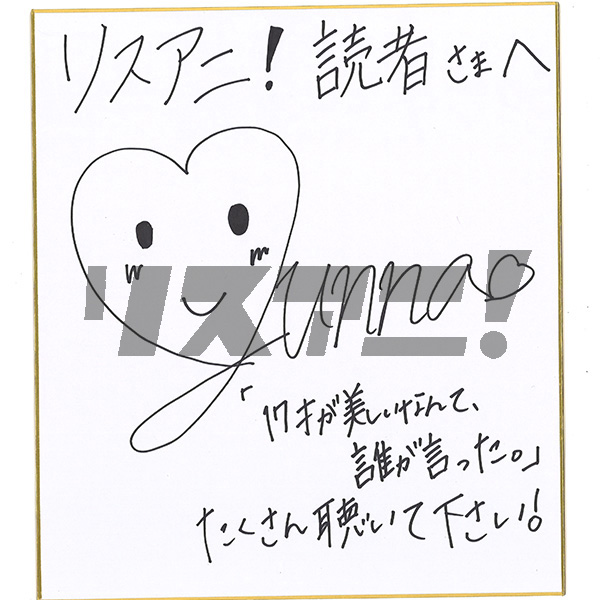 リスアニ! 読者さまへ
yunna
リスアニ!
「17才が美しいなんて、
誰が言った。」
たくさん聴いて下さい!